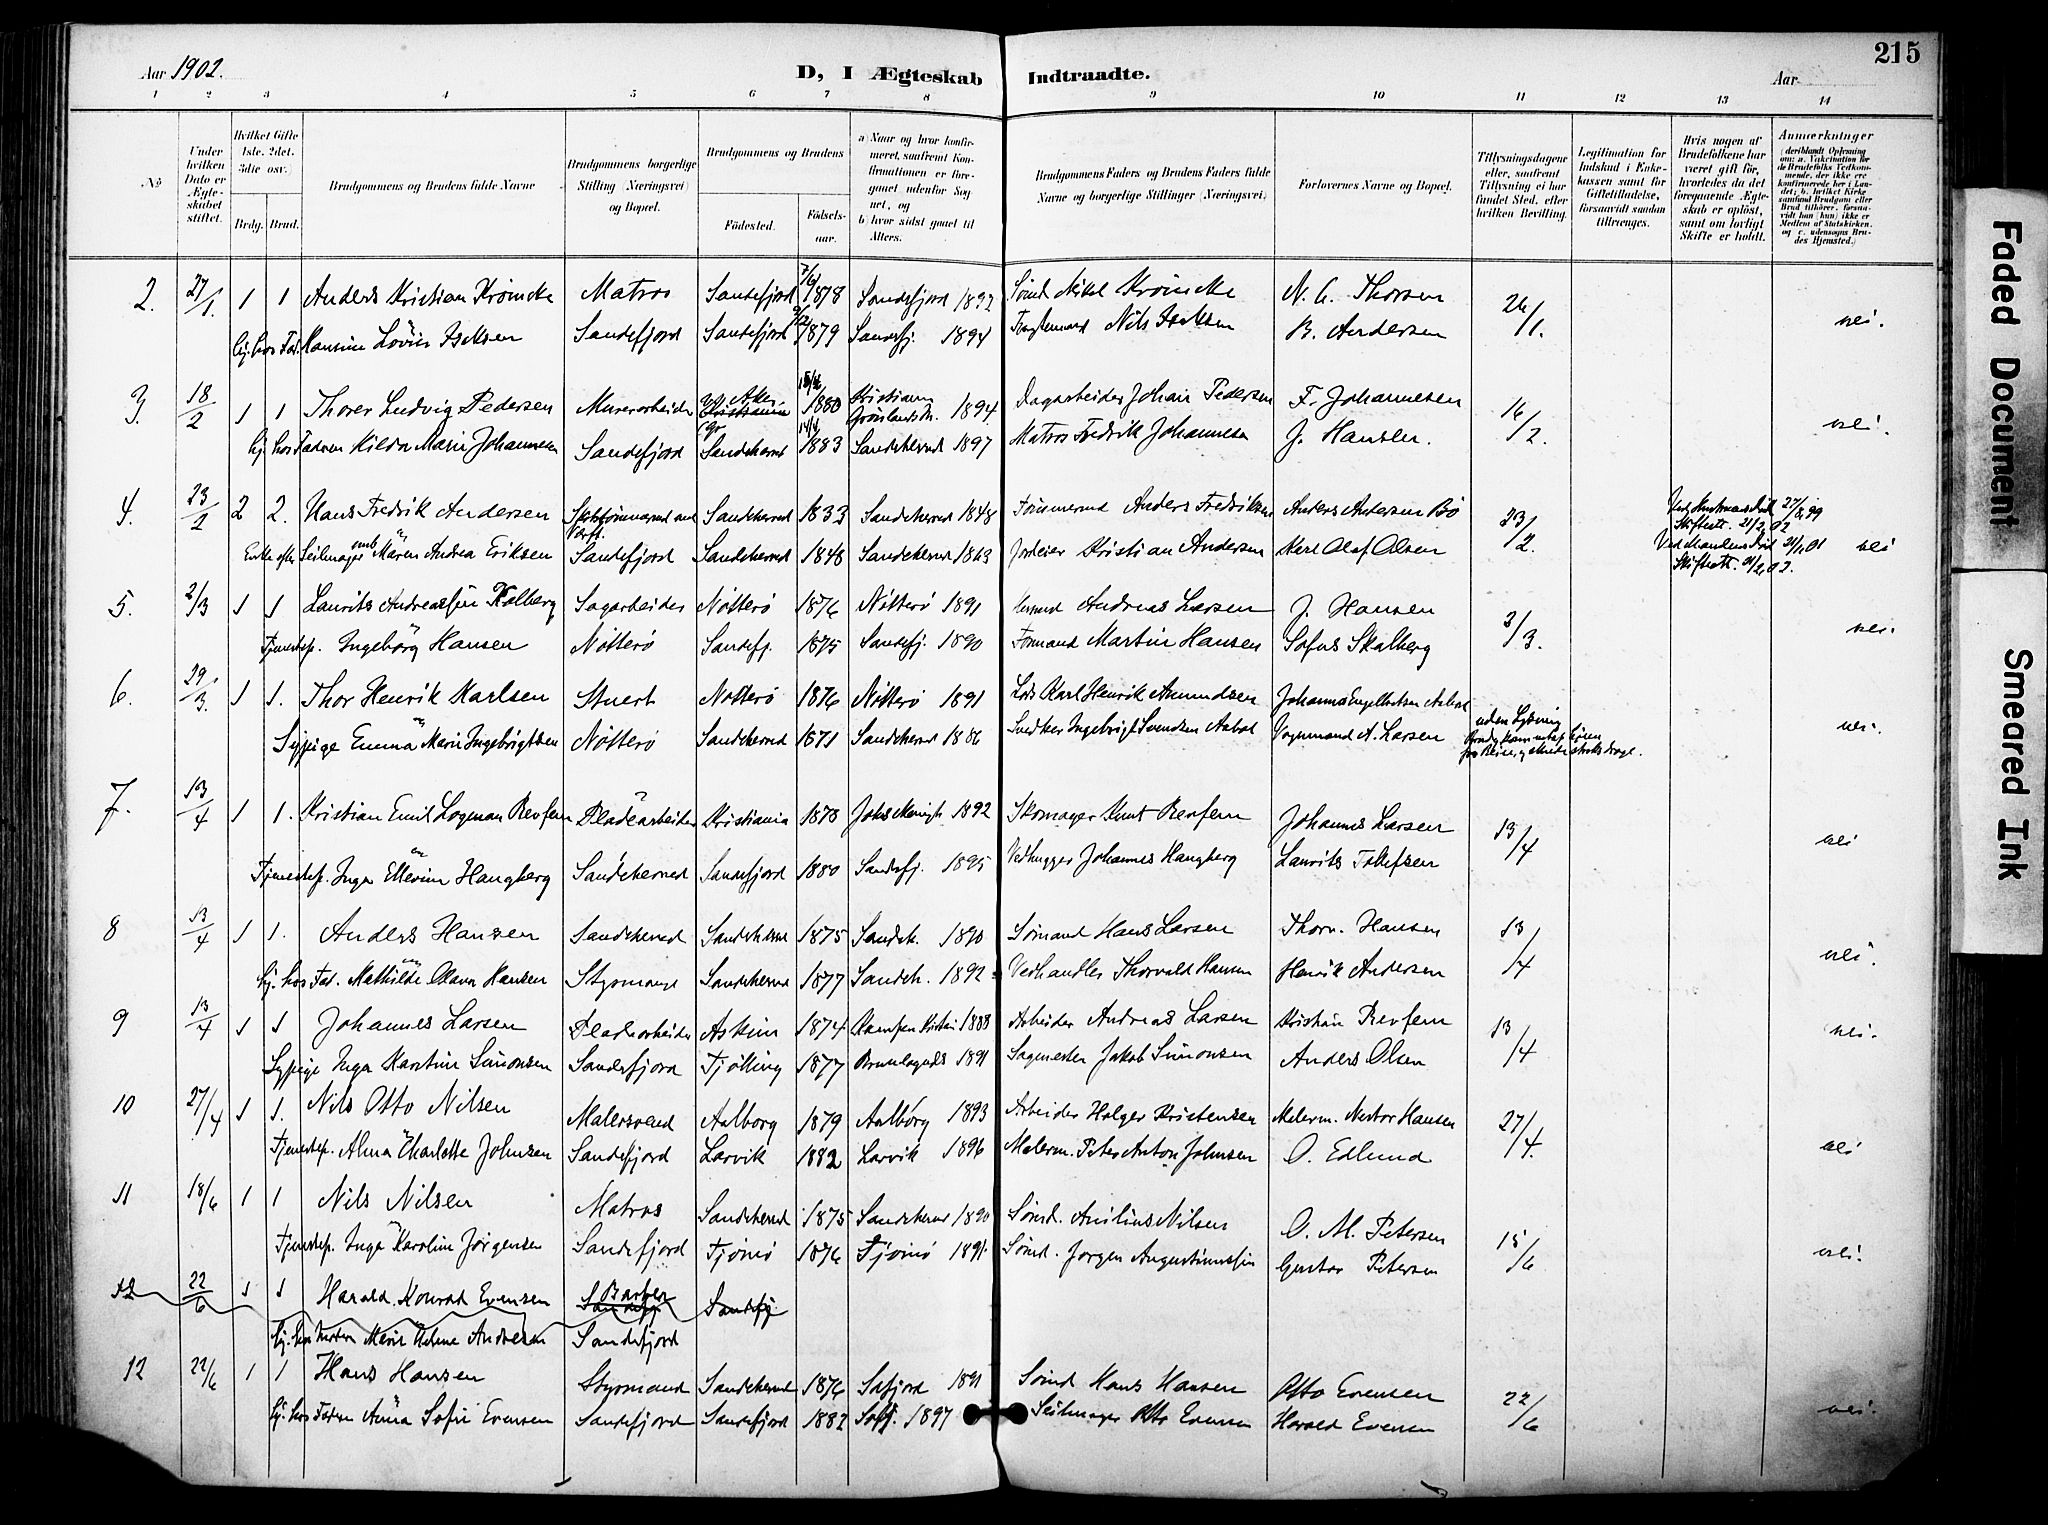 Aar 1902.
D, I Ægteskab Indtraadte.
Aar
215
1 2 3 4 5 6 7 8 9 10 11 12 13 14
No
Under hvilken Dato er Ægteskabet stiftet.
Hvilket Gifte 1ste. 2det. 3die osv.)
Brdg. Brud.
Brudgommens og Brudens fulde Navne
Brudgommens borgerlige Stilling (Næringsvei) og Bopæl.
Brudgommens og Brudens
Fødested.
Fødselsaar.
a) Naar og hvor konfirmeret, saafremt Konfirmationen er foregaaet udenfor Sognet, og
b) hvor sidst gaaet til Alters.
Brudgommens Faders og Brudens Faders fulde Navne og borgerlige Stillinger (Næringsvei)
Forlovernes Navne og Bopæl.
Tillysningsdagene eller, saafremt Tillysning ei har fundet Sted, efter hvilken Bevilling.
Legitimation for Indskud i Enkekassen samt for Giftetilladelse, forsaavidt saadan tiltrænges.
Hvis nogen af Brudefolkene har været gift før, hvorledes da det foregaaende Ægteskab er opløst, samt om lovligt Skifte er holdt.
Anmærkninger
2. 27/1 1 1 Anders Kristian Krömcke Matros Sandefjord 1878 Sandefjord 1892 Sömd. Mikal Krömcke N. C. Thorsen 26/1. nei.
hj. hos Fad. Hansine Lovise Isaksen Sandefjord Sandefjord 1879 Sandefj. 1894 Nils Isaksen B. Andersen
3. 18/2 1 1 Thorer Ludvig Pedersen Murerarbeider V. Aker Kristiania 1880 Kristiania Grönlands 1894 Dagarbeider Johan Pedersen F. Johannesen 16/2. nei.
hj. hos Faderen Hilda Marie Johannesen Sandefjord Sandeherred 1883 Sandeherred 1897 Matros Fredrik Johannesen J. Hansen.
4. 23/2 2 2. Hans Fredrik Andersen Sandeherred 1833 Sandeherred 1848 Tömmermd Anders Fredriksen Anders Andersen Bö 23/2. 27/8 99 Skifteatt. 21/2 02
Enke efter Seilmager Maren Andrea Eriksen Sandefjord Sandeherred 1848 Sandeherred 1863 Jordeier Kristian Andersen Karl Olaf Olsen Ved Mandens Död 21/1 01 Skifteatt. 21/2 02. nei
5. 2/3 1 1 Laurits Andreassen Kolberg Sagarbeider Nötterö 1876 Nötterö 1891 Andreas Larsen J. Hansen 2/3. nei.
Tjenestep. Ingeborg Hansen Nötterö Sandefj. 1875 Sandefj. 1890 Formand Martin Hansen Sofus Skalberg
6. 29/3. 1 1. Thor Henrik Karlsen Stuert Nötterö 1876 Nötterö 1891 Lods Karl Henrik Amundsen Johannes Engelbretsen uden Lysning nei.
Sypige Emma Marie Ingebrigtsen Nötterö Sandeherred 1871 Sandeherred 1886 Snedker Ingebrigt Svendsen Vognmand A. Larsen
7. 13/4 1 1. Kristian Emil Logman Revfem Pladearbeider Kristiania 1878 1892 Skomager Knut Revfem Johannes Larsen 13/4 nei
Tjenestep. Inga Ellevine Haugberg Sandeherred Sandefjord 1880 Sandefj. 1895 Vedhugger Johannes Haugberg Laurits Tollefsen
8 13/4 1 1. Anders Hansen Sandeherred Sandeherred 1875 Sandeh. 1890 Sömand Hans Larsen Thorv. Hansen 13/4 nei.
hj. hos Fad. Mathilde Olava Hansen Styrmand Sandeherred 1877 Sandeh. 1892 Vedhandler Thorvald Hansen Henrik Andersen
9 13/4 1 1 Johannes Larsen Pladearbeider Askim 1874 Kampen Kristia 1888 Arbeider Andreas Larsen Kristian Revfem 13/4 nei.
Sypige Inga Karoline Simonsen Sandefjord Tjölling 1877 Brunlagnæs 1891 Sagmester Jakob Simonsen Anders Olsen
10 27/4 1 1. Nils Otto Nilsen Malersvend Aalborg 1879 Aalborg 1893 Arbeider Holger Kristensen Malerm. Nestor Hansen 27/4. nei
Tjenestep. Alma Charlotte Johnsen Sandefjord Larvik 1882 Larvik 1896 Malerm. Peter Anton Johnsen O. Edlund
11 18/6 1 1 Nils Nilsen Matros Sandeherred 1875 Sandeherred 1890 Sömd. Anilius Nilsen O. M. Petersen 15/6 nei.
Tjenestep. Inga Karoline Jörgensen Sandefjord Tjömö 1876 Tjömö 1891. Sömd. Jörgen Augustinussen Gustav Petersen
12 22/6 1 1 Harald Konrad Evensen Barber Sandefj. Sandefj.
hj. hos Moderen Marie Helene Andresen Sandefjord
12 22/6 1 1 Hans Hansen Styrmand Sandeherred 1876 Safjord 1891 Sömd Hans Hansen Otto Evensen 22/6 nei.
hj. hos Faderen Anna Sofie Evensen Sandefjord Sandefjord 1882 1897 Seilmager Otto Evensen Harald Evensen
Faded Document
Smeared Ink